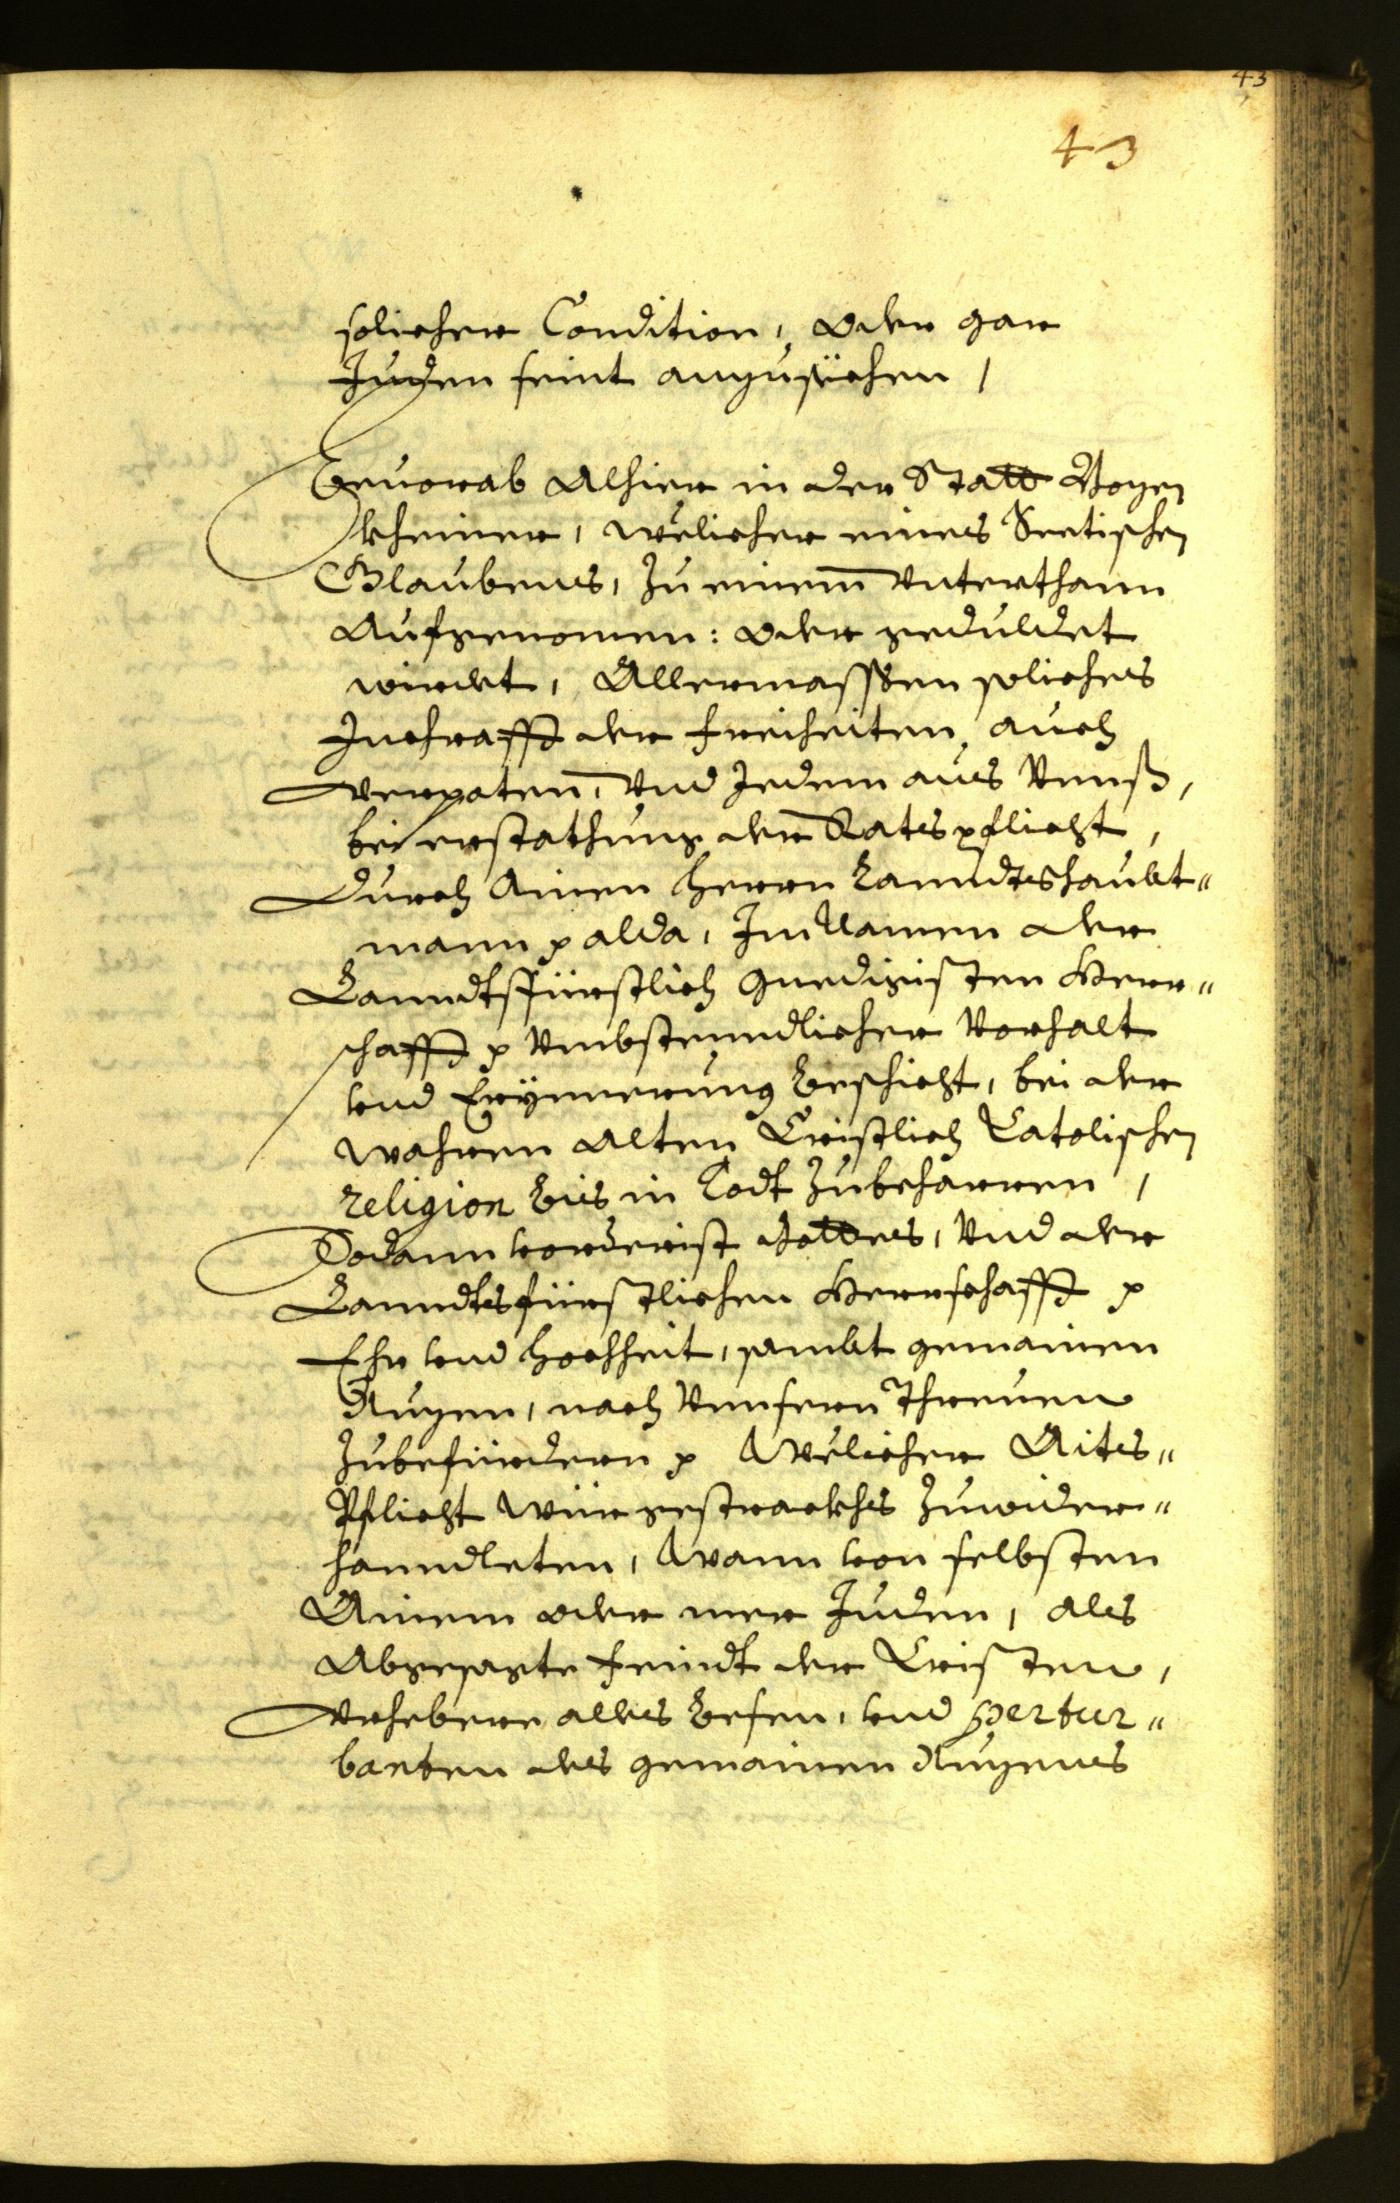 43
43
solicher Condition, oder gar
Juden seint anzusüchen /
Bevorab Alhier in der Statt Bozen
kheiner, welicher eines Sectischen
Glaubens, zu einem Unterthann
Aufgenomen: oder geduldet
wirdet, Allermassen soliches
In chrafft der freiheiten auch
verpoten, Und Jedem aus Unnß,
bei erstathung der Ratspflicht,
Durch Ainen herrn Lanndtshaubt"
mann alda, In Namen der
Lanndtsfürstlich Gnedigisten Herr"
schafft Umbstenndlicher Vorhalt
und Erÿnnerung beschicht, bei der
wahren Alten Cristlich Catolischen
religion bis in Todt zubeharren,
Sodann vorderist Gottes, Und der
Lanndtsfürstlichen Herrschafft
Ehr und Hochheit, sambt gemainen
Nuzen, nach Unnsern Threuen
zubefürdern Welicher Aits"
Pflicht wür gestrackhs zuwider"
hanndleten, Wann von selbsten
Ainem oder mer Juden, als
Abgesagte feindt der Cristen,
Urhebere alles besen, und pertur"
banten des gemainen Nuzens